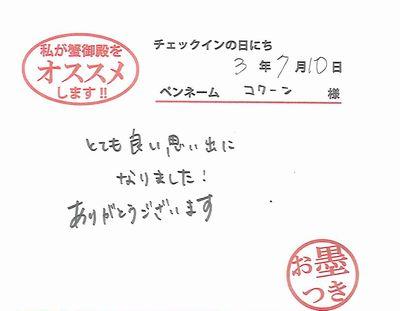 私が蟹御殿を
オススメ
します!!
チェックインの日にち
3年7月10日
ペンネーム コクーン 様
とても良い思い出に
なりました!
ありがとうございます
お墨
つき